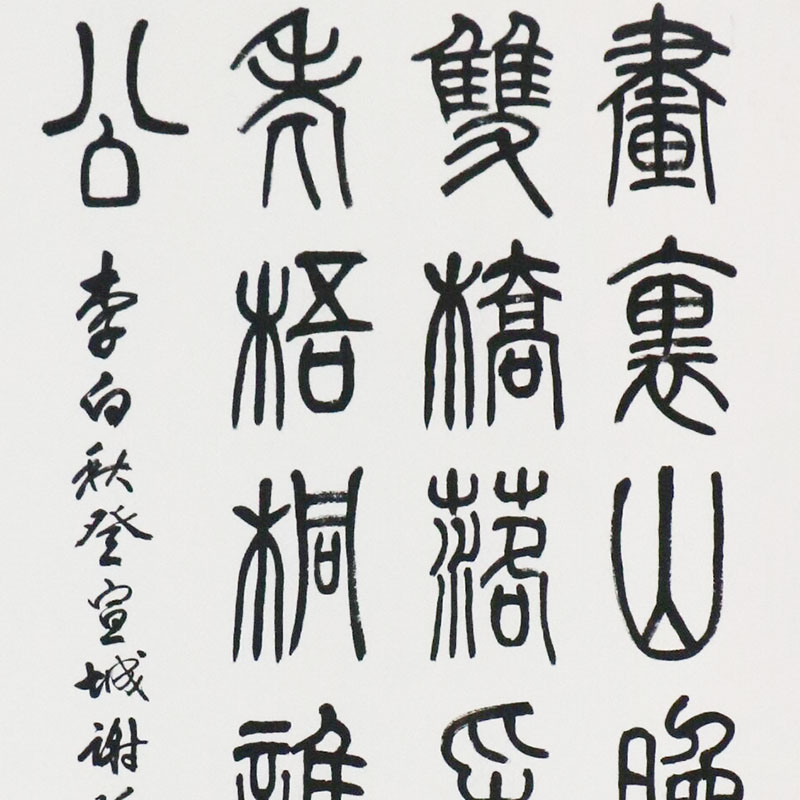 畫裏山晚
雙橋落
老梧桐誰
公
李白秋登宣城謝